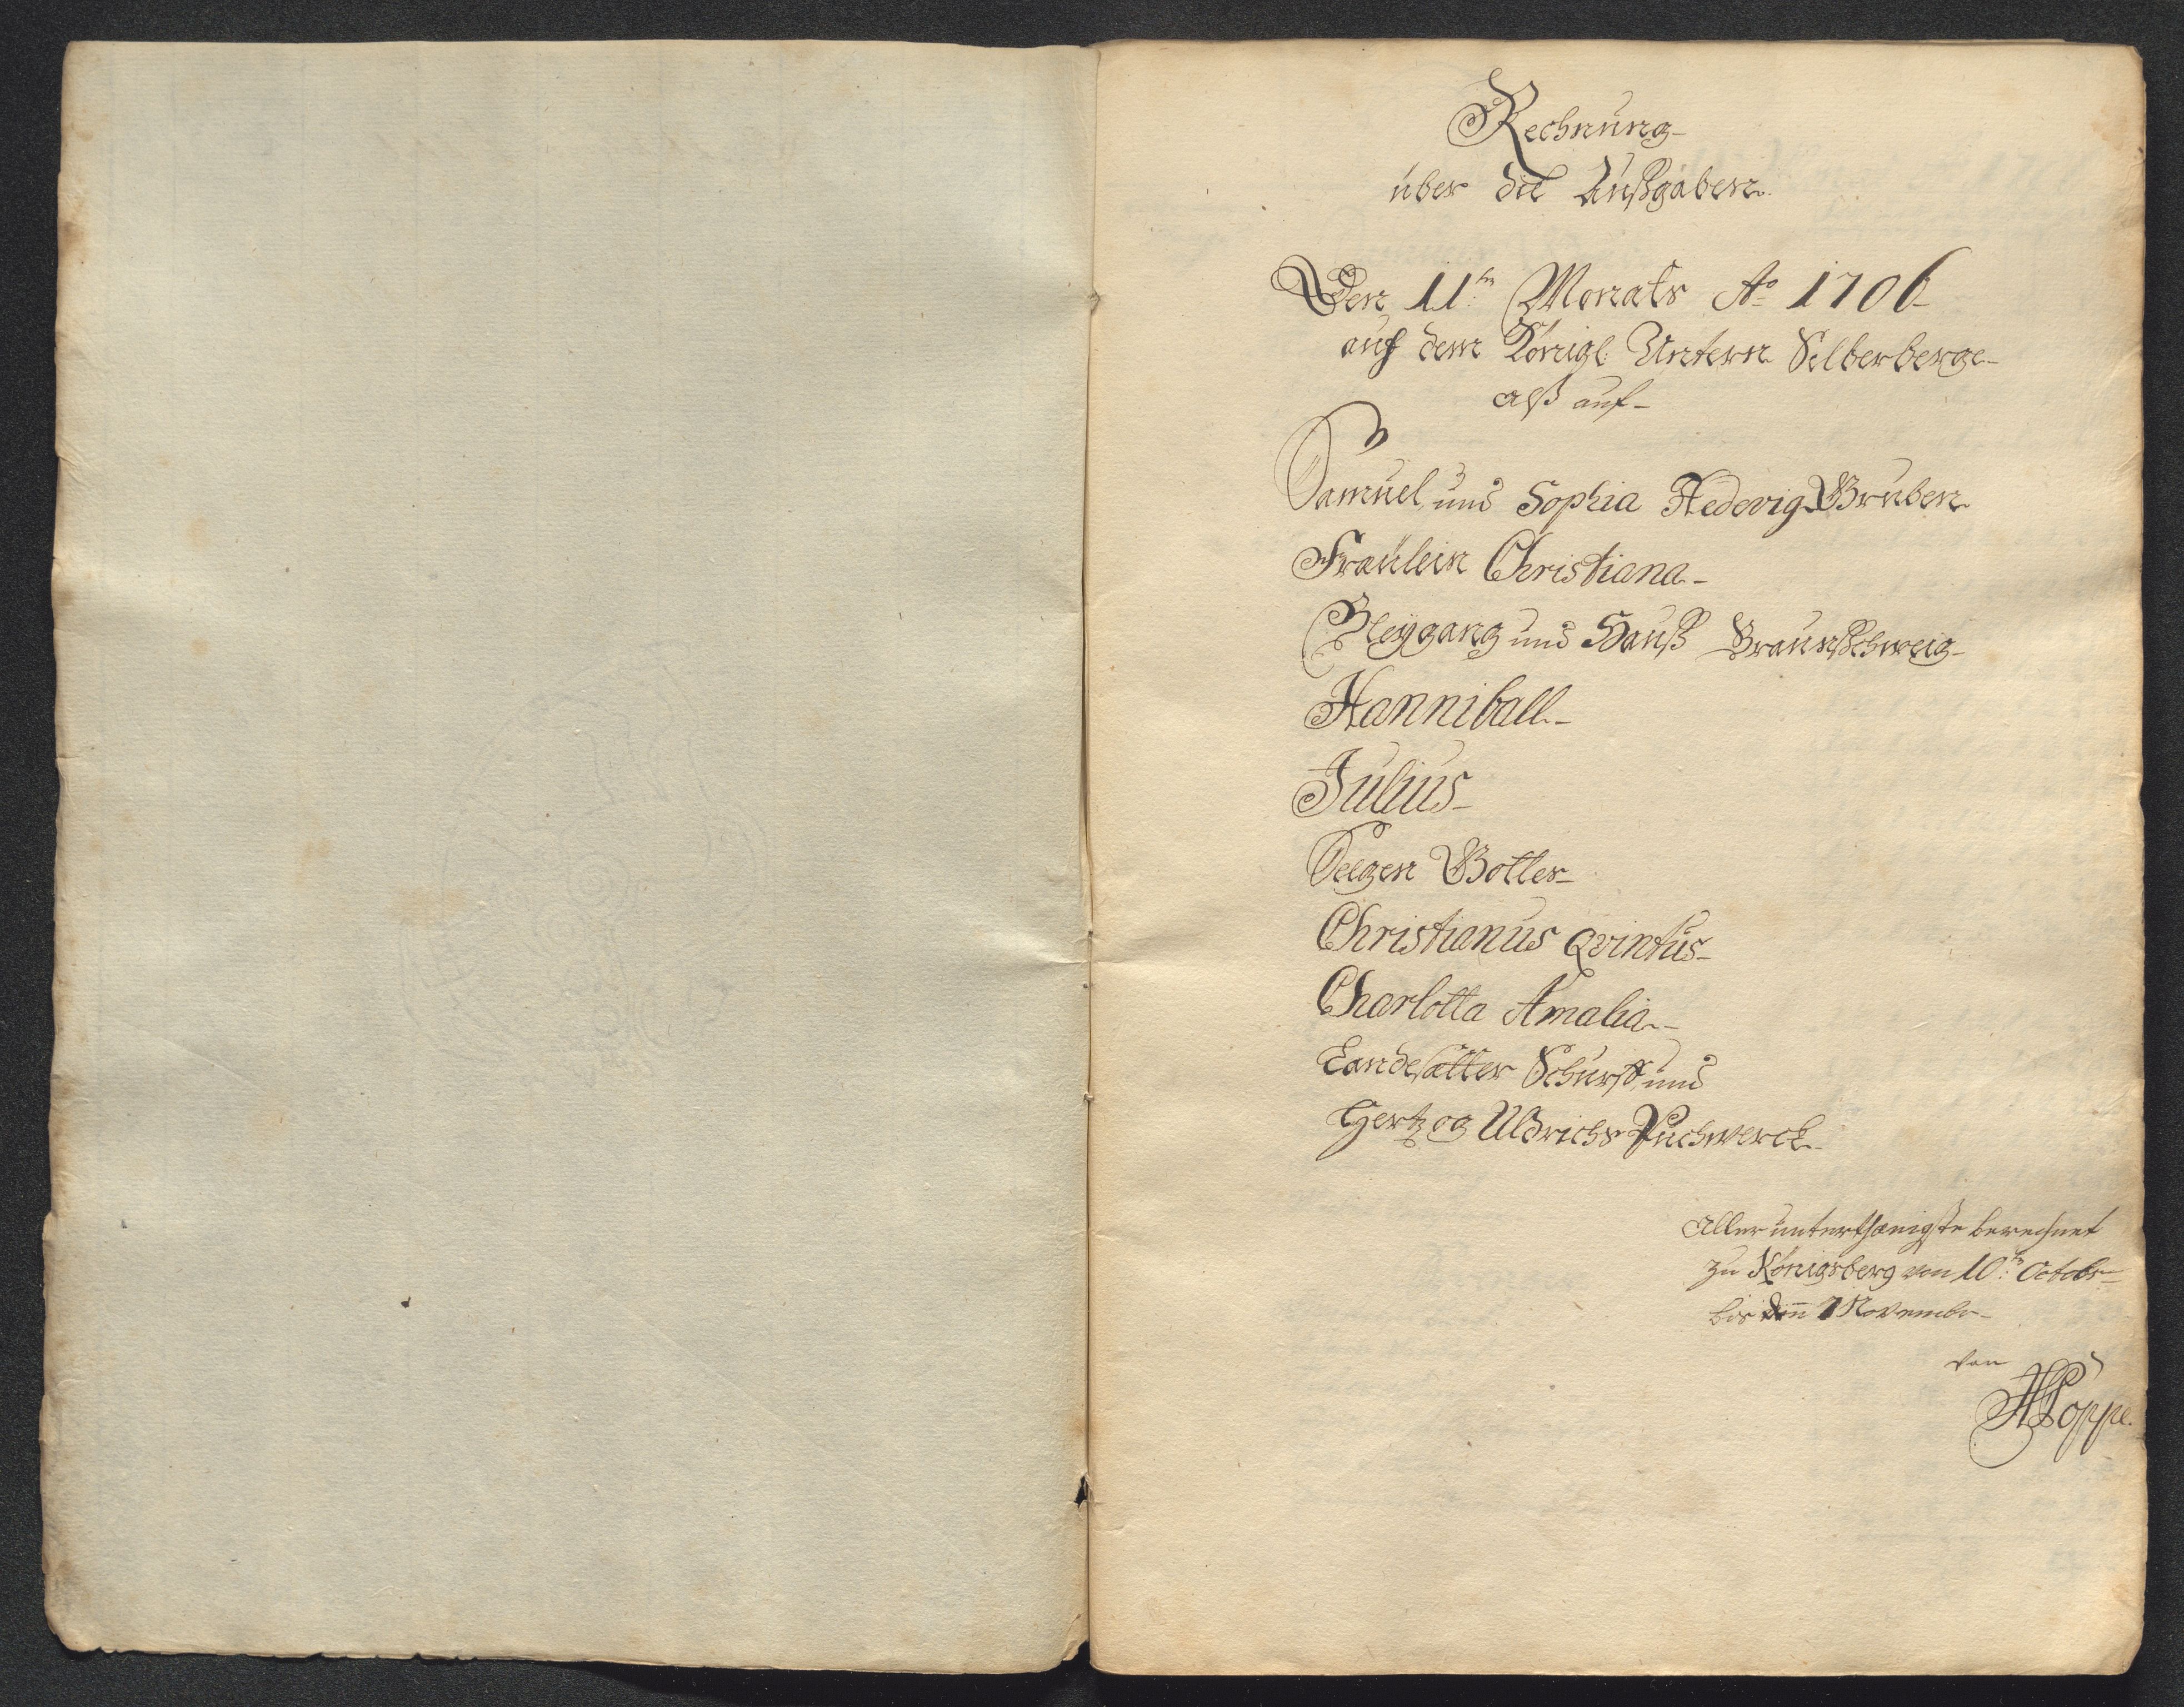 Rechnung
über die Außgaben
Den 11ten Monats Ao 1706
auf dem Königl: Untern Silberberge
alß auf
Samuel und Sophia Hedevig Gruben
Fraülein Christiana
Bleygang und Hauß Braunschweig
Hanniball
Julius
Seegen Gottes
Christianus Qvintus
Charlotta Amalia
Schurff und
Hertzog Uldrichs Puchwerck
Aller unterthänigste berechnet
zu Königsberg von 10ten Octobr
bis den 7 Novembr
von
Poppe